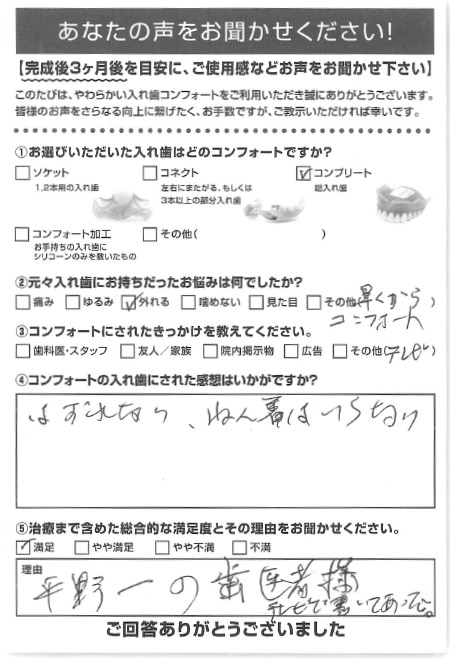 あなたの声をお聞かせください!
【完成後3ヶ月後を目安に、ご使用感などお声をお聞かせ下さい】
このたびは、やわらかい入れ歯コンフォートをご利用いただき誠にありがとうございます。
皆様のお声をさらなる向上に繋げたく、お手数ですが、ご教示いただければ幸いです。
①お選びいただいた入れ歯はどのコンフォートですか?
□ソケット
1,2本用の入れ歯
□コネクト
左右にまたがる、もしくは
3本以上の部分入れ歯
☑コンプリート
総入れ歯
□コンフォート加工
お手持ちの入れ歯に
シリコーンのみを敷いたもの
□その他( )
②元々入れ歯にお持ちだったお悩みは何でしたか?
□痛み □ゆるみ ☑外れる □噛めない □見た目 □その他(早くから)
コンフォート
③コンフォートにされたきっかけを教えてください。
□歯科医・スタッフ □友人/家族 □院内掲示物 □広告 □その他(テレビ)
④コンフォートの入れ歯にされた感想はいかがですか?
はずれない、ねん着はいらない
⑤治療まで含めた総合的な満足度とその理由をお聞かせください。
☑満足 □やや満足 □やや不満 □不満
理由
平野一の歯医者様
テレビで書いてあった。
ご回答ありがとうございました